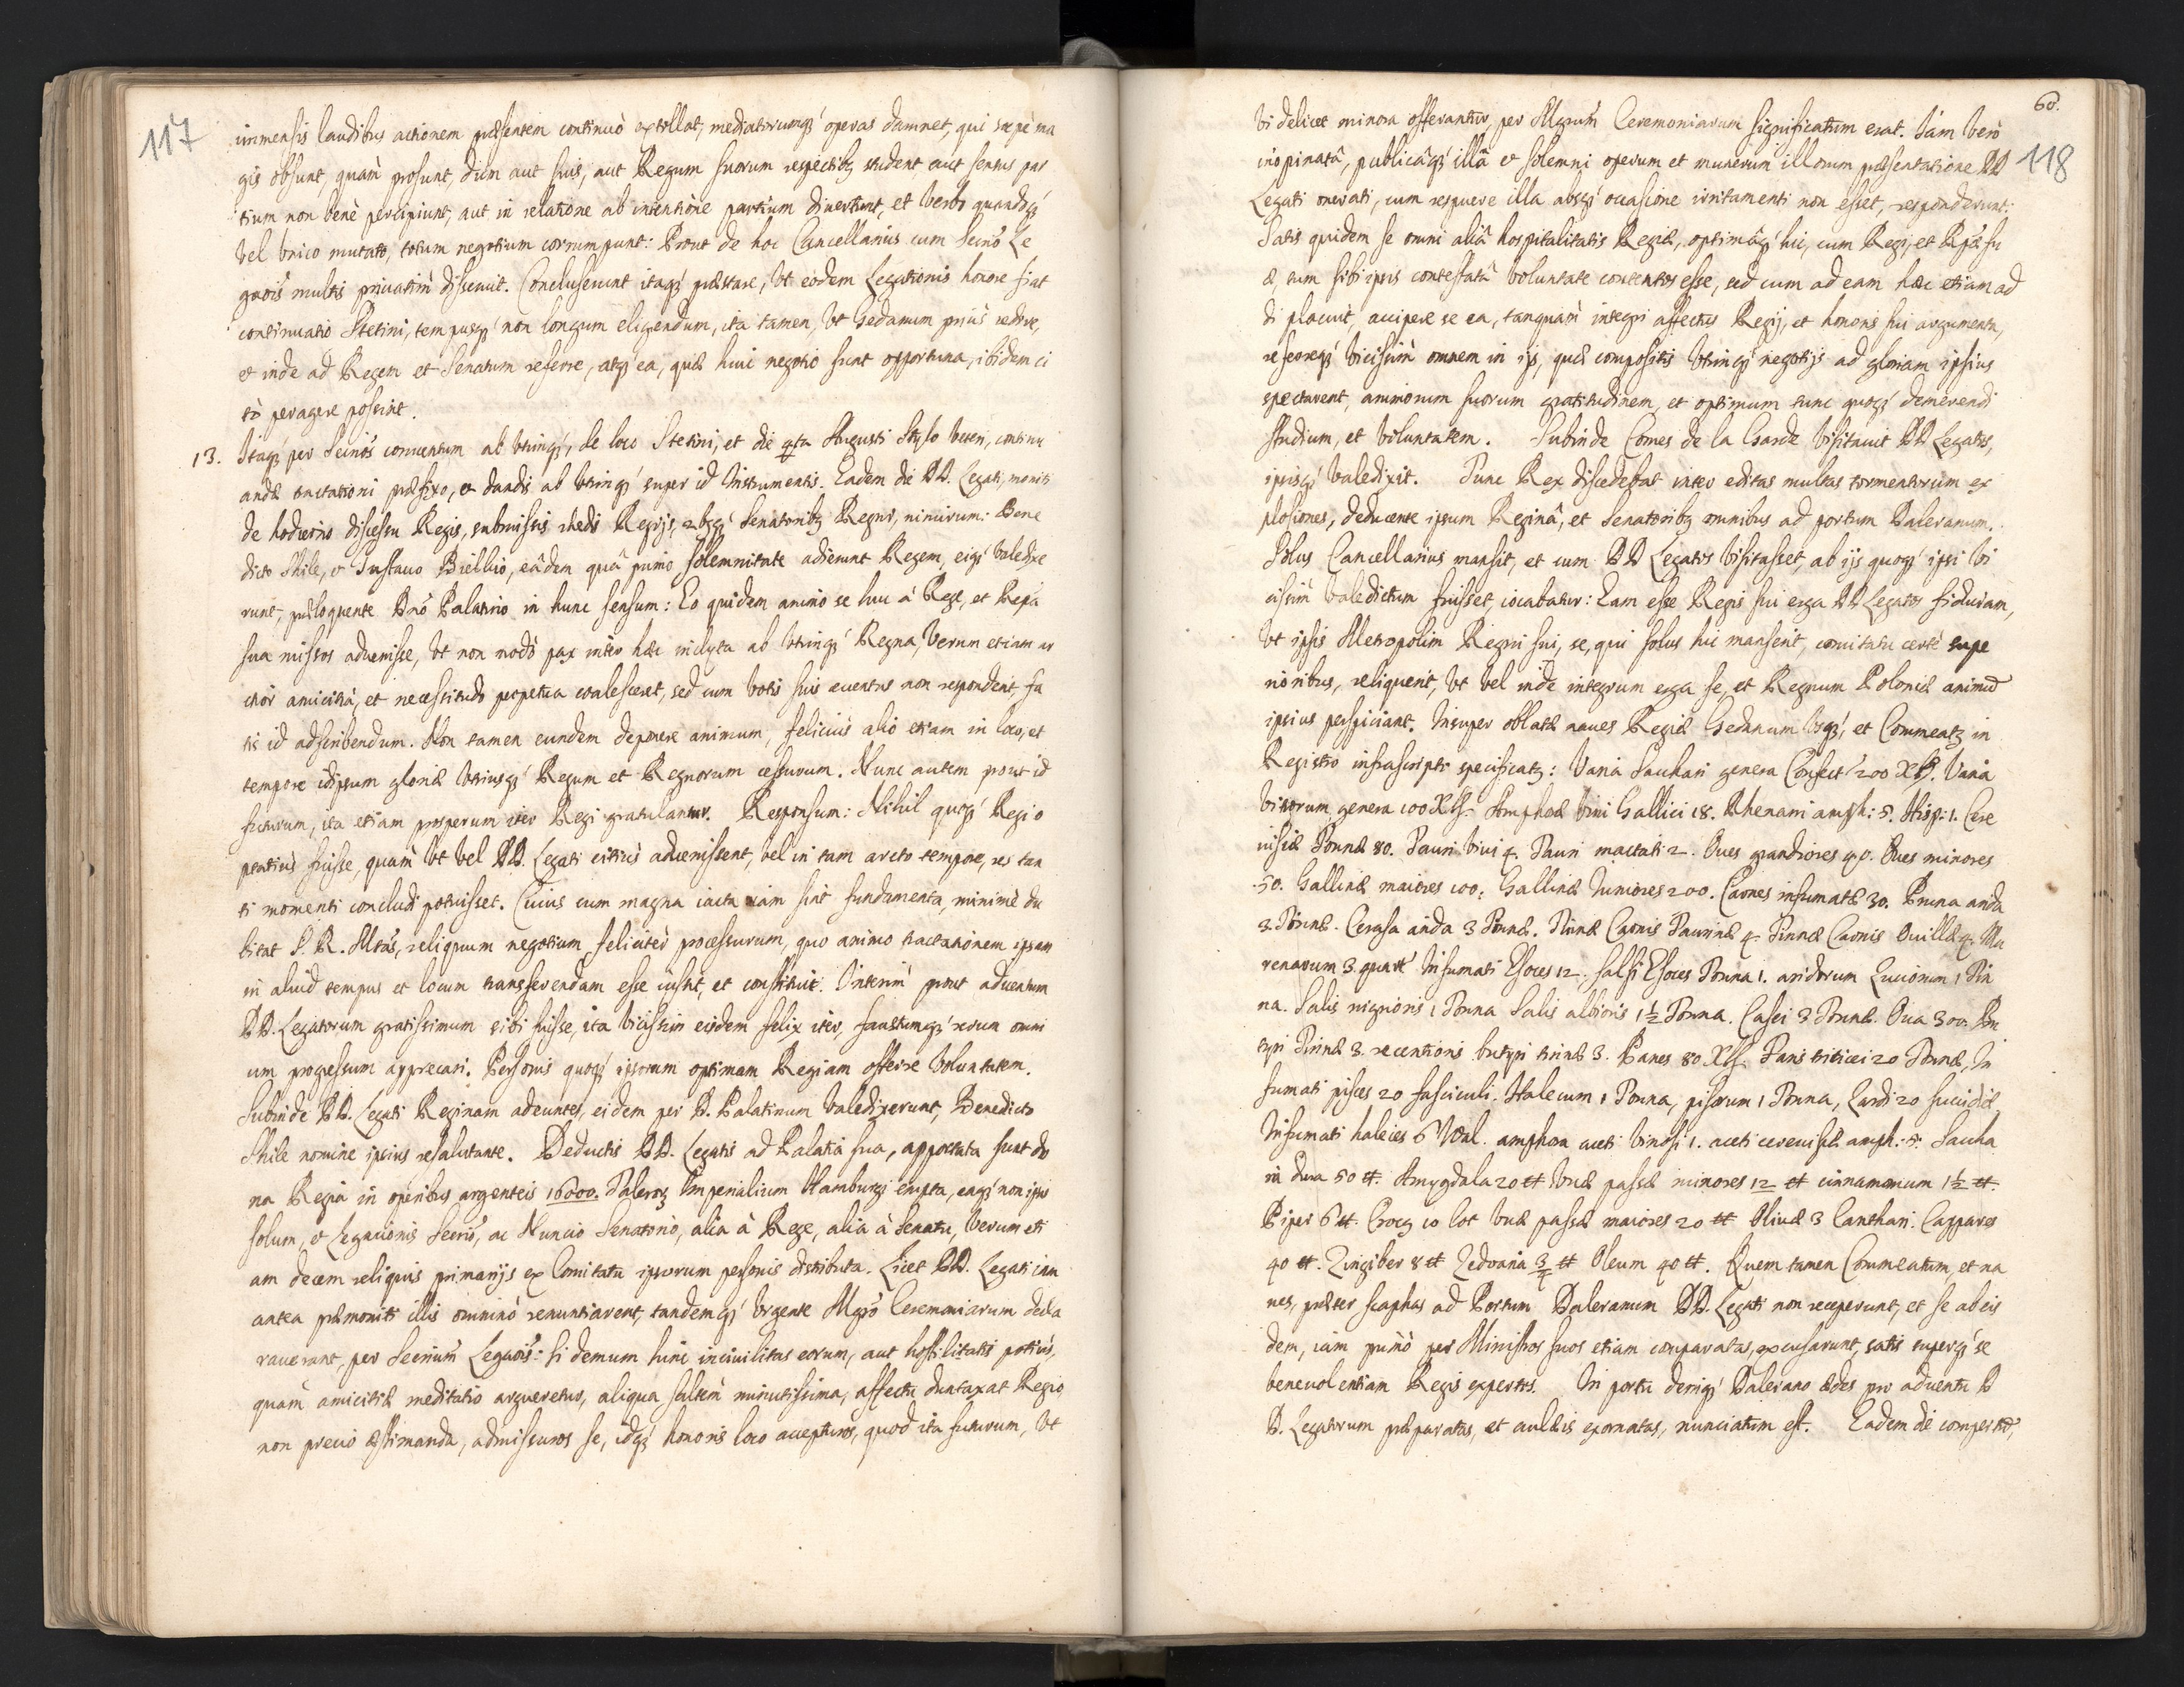 117
immensis laudibus actionem præsentem continuò extollat, mediatorumq́ operas damnet, qui sæpè ma
gis obsunt, quàm prosunt, dum aut suis, aut Regum suorum respectibꝫ student aut sensus par
tium non benè percipiunt, aut in relatione ab intentione partium divertunt, et verbo quandoq́
vel unico mutato, totum negotium corrumpunt: Prout de hoc Cancellarius cum Secrio Le
gaõis multis privatim disseruit. Concluserunt itaq́ præstare, ut eodem Legationis honore fiat
continuatio Stetini, tempusq́ non longum eligendum, ita tamen, ut Gedanum prius redire,
et inde ad Regem et Senatum referre, atq́ ea, quæ huic negotio sunt opportuna, ibidem ci
tò peragere possint.
13. Itaq́ per Secrios conventum ab utrinq́, de loco Stetini, et die 4ta Augusti Stylo veteri, continu
andæ tractationi præfixo, et dandis ab utrinq́ super id Instrumentis. Eadem die DD. Legati, moniti
de hodierno discessu Regis, submissis rhedis Regijs, 2bꝫq́ Senatoribꝫ Regni, nimirum: Bene
dicto Shile, et Gustavo Biellio, eâdem quâ primo solemnitate adierunt Regem, eiq́ valedixe
runt, præloquente Dnõ Palatino in hunc sensum: Eo quidem animo se huc à Rege, et Repca
sua missos advenisse, ut non modò pax inter hæc inclyta ab utrinq́ Regna, verum etiam ar
ctior amicitia, et necessitudo perpetua coalesceret, sed cum votis suis eventus non respondent, fa
tis id adscribendum. Non tamen eundem deponere animum, felicius alio etiam in loco, et
tempore idipsum gloriæ utriusq́ Regum et Regnorum cessurum. Nunc autem prout id
futurum, ita etiam prosperum iter Regi gratulantur. Responsum: Nihil quoq́ Regi o
ptatius fuisse, quàm ut vel DD. Legati citius advenissent, vel in tam arcto tempore, res tan
ti momenti concludi potuisset. Cuius cum magna iacta iam sint fundamenta, minimè du
bitat S. R. Mtas, reliquum negotium feliciter processurum, quo animo tractationem ipsam
in aliud tempus et locum transferendam esse iussit, et constituit. Interim prout adventum
DD. Legatorum gratissimum sibi fuisse, ita vicissim eisdem felix iter, faustumq́ rerum omni
um progressum apprecari. Personis quoq́ ipsorum optimam Regiam offerre voluntatem.
Subinde DD. Legati Reginam adeuntes, eidem per D. Palatinum valedixerunt, Benedicto
Shile nomine ipsius resalutante. Deductis DD. Legatis ad Palatia sua, apportata sunt do
na Regia in operibus argenteis 16000. Talerorꝫ Imperialium Hamburgi empta, eaq́ non ipsis
solum, et Legationis Secrio, ac Nuncio Senatorio, alia à Rege, alia à Senatu, verum eti
am decem reliquis primarijs ex Comitatu ipsorum personis distributa. Licet DD. Legati iam
antea præmoniti illis omninò renuntiarent, tandemq́ urgente Mgrõ Ceremoniarum decla
raverant, per Secrium Legaõis: si demum hinc incivilitas eorum, aut hostilitatis potius,
quàm amicitiæ meditatio argueretur, aliqua saltem minutissima, affectu duntaxat Regio
non precio æstimanda, admissuros se, idq́ honoris loco accepturos, quod ita futurum, ut
60.
118
videlicet minora offerantur, per Mgrum Ceremoniarum significatum erat. Iam verò
inopinatâ, publicâq́ illâ et solemni operum et munerum illorum præsentatione DD
Legati onerati, cum respuere illa absq́ occasione irritamenti non esset, responderunt:
Satis quidem se omni aliâ hospitalitatis Regiæ, optimâq́ hic, cum Regi, et Rpcæ su
æ, tum sibi ipsis contestatâ voluntate contentos esse, sed cum ad eam hæc etiam ad
di placuit, accipere se ea, tanquam integri affectus Regij, et honoris sui argumenta,
referreq́ vicissim omnem in ijs, quæ compositis utrinq́ negotijs ad gloriam ipsius
spectarent, animorum suorum gratitudinem, et optimum tunc quoq́ demerendi
studium, et voluntatem. Subinde Comes de la Garde visitavit DD Legatos,
ipsisq́ valedixit. Tunc Rex discedebat inter editas multas tormentorum ex
plosiones, deducente ipsum Reginâ, et Senatoribꝫ omnibus ad portum Daleranum.
Solus Cancellarius mansit, et cum DD Legatos visitasset, ab ijs quoq́ ipsi vi
cissim valedictum fuisset, iocabatur: Eam esse Regis sui erga DD Legatos fiduciam,
ut ipsis Metropolim Regni sui, se, qui solus hic manserit, comitatu certè supe
rioribus, reliquerit, ut vel inde integrum erga se, et Regnum Poloniæ animũ
ipsius perspiciant. Insuper oblatæ naves Regiæ Gedanum usq́, et Commeatꝫ in
Registro infrascripto specificatꝫ: Varia Sacchari genera Confect 200 Xlb. Varia
vitrorum genera 100 Xlb. Amphoræ vini Gallici 18. Rhenani amph: 5. Hisp: 1. Cere
visiæ Tonnæ 80. Tauri vivi 4. Tauri mactati 2. Oves grandiores 40. Oves minores
50. Gallinæ maiores 100. Gallinæ Iuniores 200. Carnes infumatæ 30. Pruna arida
3. Tonnæ. Cerasa arida 3 Tonnæ. Tinnæ Carnis Taurinæ 4. Tinnæ Carnis Ovillæ 4. Mu
renarum 3 quart Infumati Esoces 12. Salsi Esoces Tonna 1. aridorum Luciorum 1 Tin
na. Salis nigrioris 1 Tonna Salis albioris 1½ Tonna. Casei 3 Tonnæ. Ova 300. Bu
tyri Tinnæ 3. recentioris butyri tinnæ 3. Panes 80 Xlb. Panis triticei 20 Tonnæ, In
fumati pisces 20 fasciculi. Halecum 1 Tonna, pisorum 1 Tonna, Lardi 20 succidiæ.
Infumati haleces 6 Wal. amphora aceti vinosi 1. aceti cerevisiæ amph: 5. Saccha
ra dura 50 ℔. Amygdala 20 ℔ Uvæ passæ minores 12 ℔ cinnamomum 1½ ℔.
Piper 6 ℔. Croci 10 lot Uvæ passæ maiores 20 ℔ Olivæ 3 Canthari. Cappares
40 ℔. Zingiber 8 ℔ Zedoaria ¾ ℔ Oleum 40 ℔. Quem tamen Commeatum, et na
ves, præter scaphas ad Portum Daleranum DD. Legati non receperunt, et se ab eis
dem, iam primò per Ministros suos etiam comparatas, excusarunt, satis superq́ se
benevolentiam Regis expertos. In portu deniq́ Dalerano ædes pro adventu D
D. Legatorum præparatas, et aulæis exornatas, nunciatum est. Eadem die compertũ,